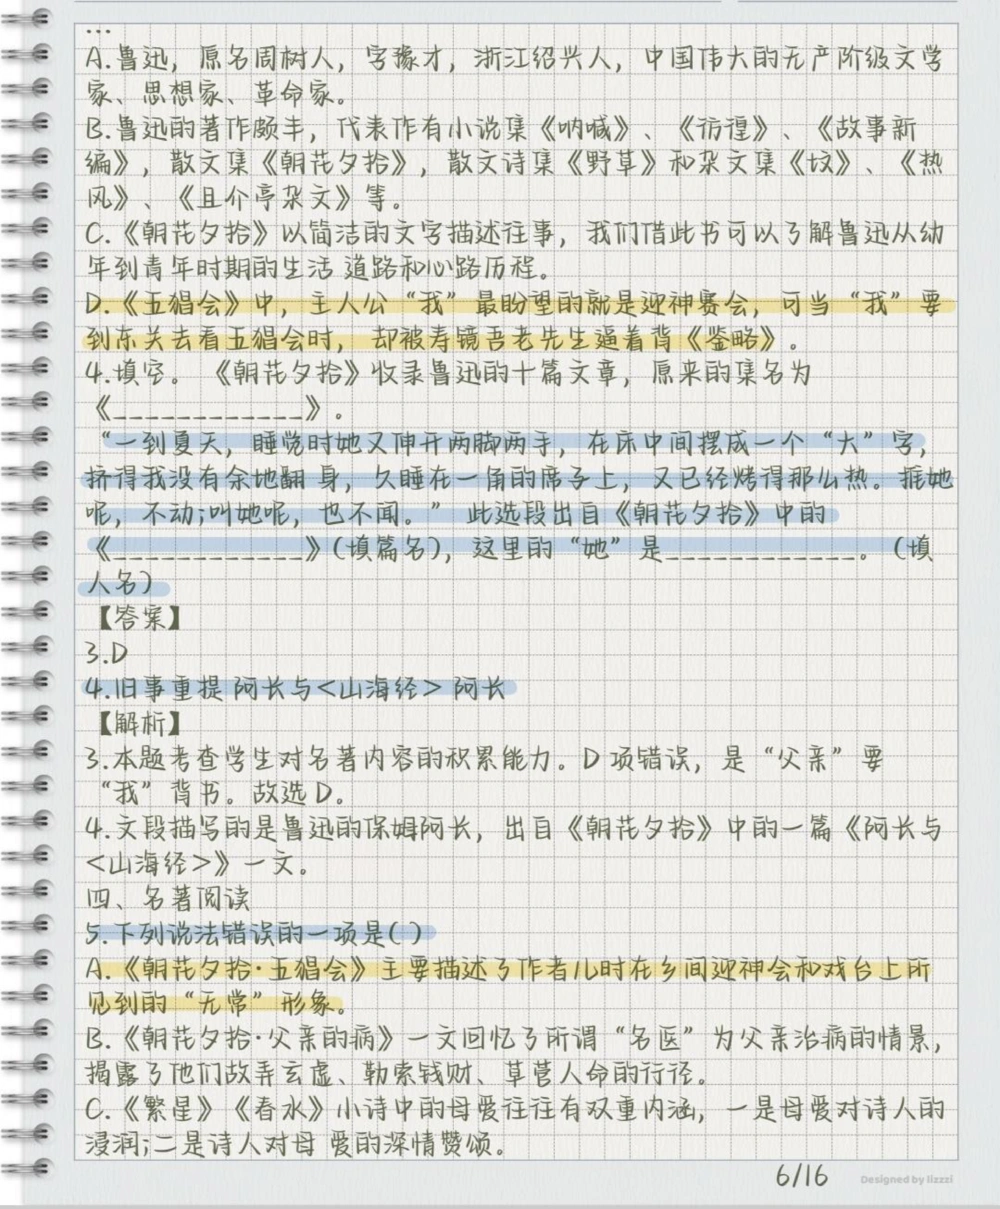 ...
A.鲁迅，原名周树人，字豫才，浙江绍兴人，中国伟大的无产阶级文学
家、思想家、革命家。
B.鲁迅的著作颇丰，代表作有小说集《呐喊》、《彷徨》、《故事新
编》，散文集《朝花夕拾》，散文诗集《野草》和杂文集《坟》、《热
风》、《且介亭杂文》等。
C.《朝花夕拾》以简洁的文字描述往事，我们借此书可以了解鲁迅从幼
年到青年时期的生活 道路和心路历程。
D.《五猖会》中，主人公“我”最盼望的就是迎神赛会，可当“我”要
到东关去看五猖会时， 却被寿镜吾老先生逼着背《鉴略》。
4.填空。 《朝花夕拾》收录鲁迅的十篇文章，原来的集名为
《____________》。
“一到夏天，睡觉时她又伸开两脚两手，在床中间摆成一个“大”字，
挤得我没有余地翻 身，久睡在一角的席子上，又已经烤得那么热。推她
呢，不动;叫她呢，也不闻。” 此选段出自《朝花夕拾》中的
《____________》(填篇名)，这里的“她”是____________。(填
人名)
【答案】
3.D
4.旧事重提 阿长与<山海经> 阿长
【解析】
3.本题考查学生对名著内容的积累能力。D 项错误，是“父亲”要
“我”背书。故选 D。
4.文段描写的是鲁迅的保姆阿长，出自《朝花夕拾》中的一篇《阿长与
<山海经>》一文。
四、名著阅读
5.下列说法错误的一项是( )
A.《朝花夕拾·五猖会》主要描述了作者儿时在乡间迎神会和戏台上所
见到的“无常”形象。
B.《朝花夕拾·父亲的病》一文回忆了所谓“名医”为父亲治病的情景，
揭露了他们故弄玄虚、勒索钱财、草菅人命的行径。
C.《繁星》《春水》小诗中的母爱往往有双重内涵，一是母爱对诗人的
浸润;二是诗人对母 爱的深情赞颂。
6/16
Designed by lizzzi